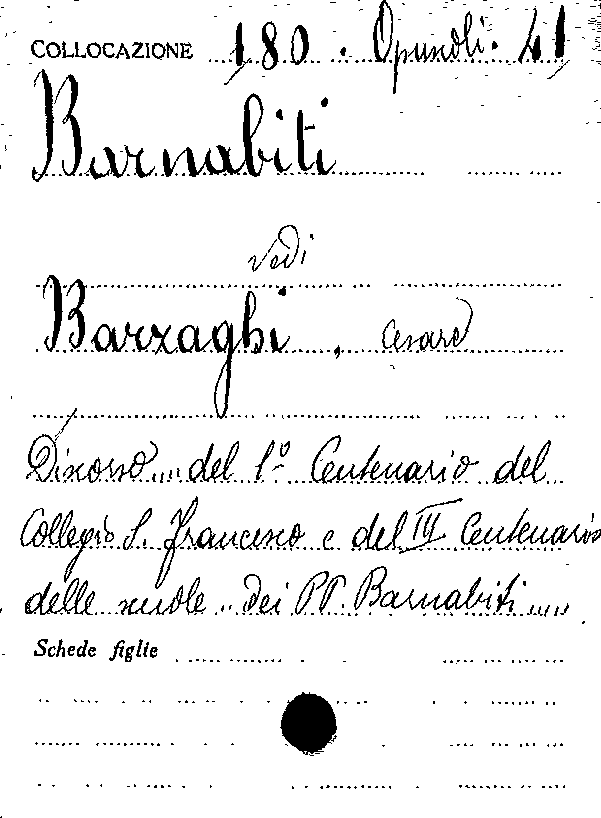 COLLOCAZIONE 180 . Opuscoli. 41
Barnabiti
vedi
Barzaghi, Cesare
Discorso... del 1º Centenario del
Collegio S. Francesco e del III Centenario
delle scuole.. dei PP. Barnabiti....
Schede figlie